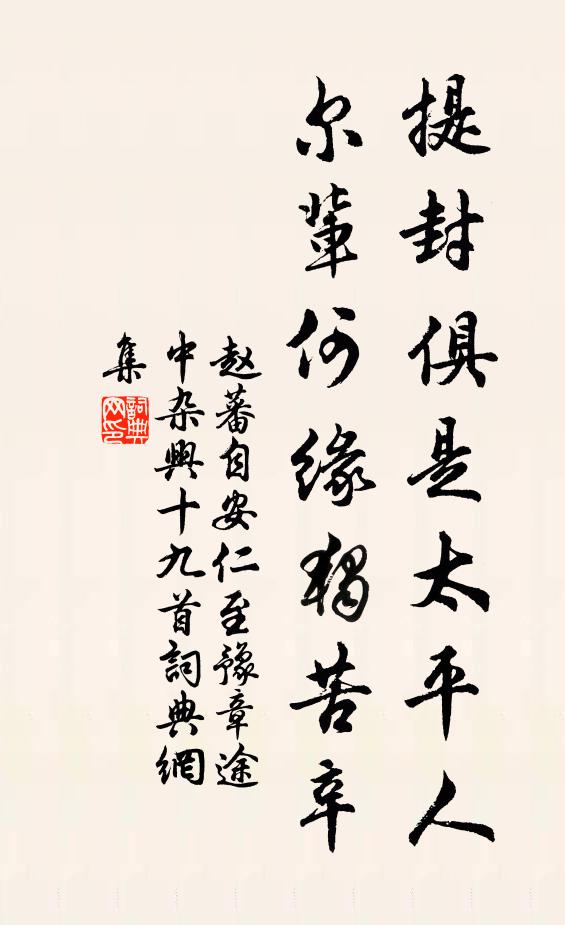 提封俱是太平人
尔辈何缘独苦辛
赵蕃自安仁至豫章途
中杂興十九首詞典網
集
詞典
网印